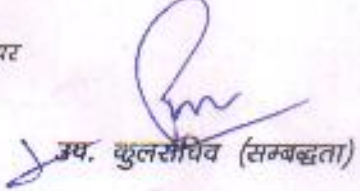 पर
उप. कुलसचिव (सम्बद्धता)